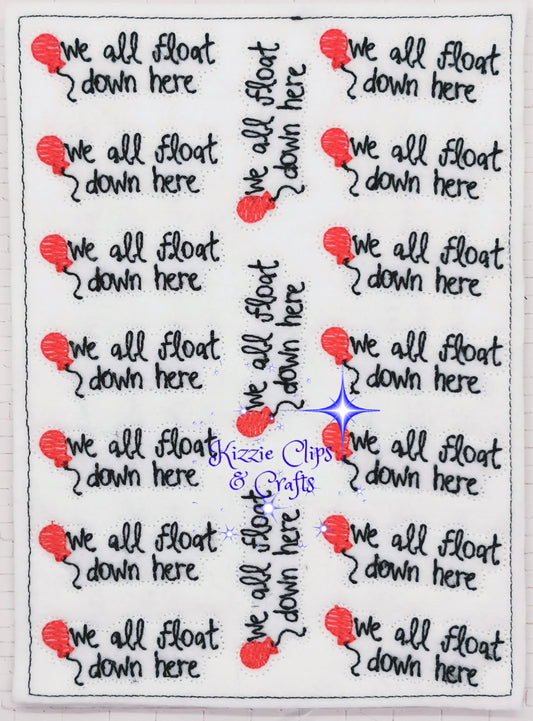 We all float
down here
We all float
down here
We all float
down here
We all float
down here
We all float
down here
We all float
down here
We all float
down here
We all float
down here
We all float
down here
We all float
down here
Kizzie Clips
& Crafts
We all float
down here
We all float
down here
We all float
down here
We all float
down here
We all float
down here
We all float
down here
We all float
down here